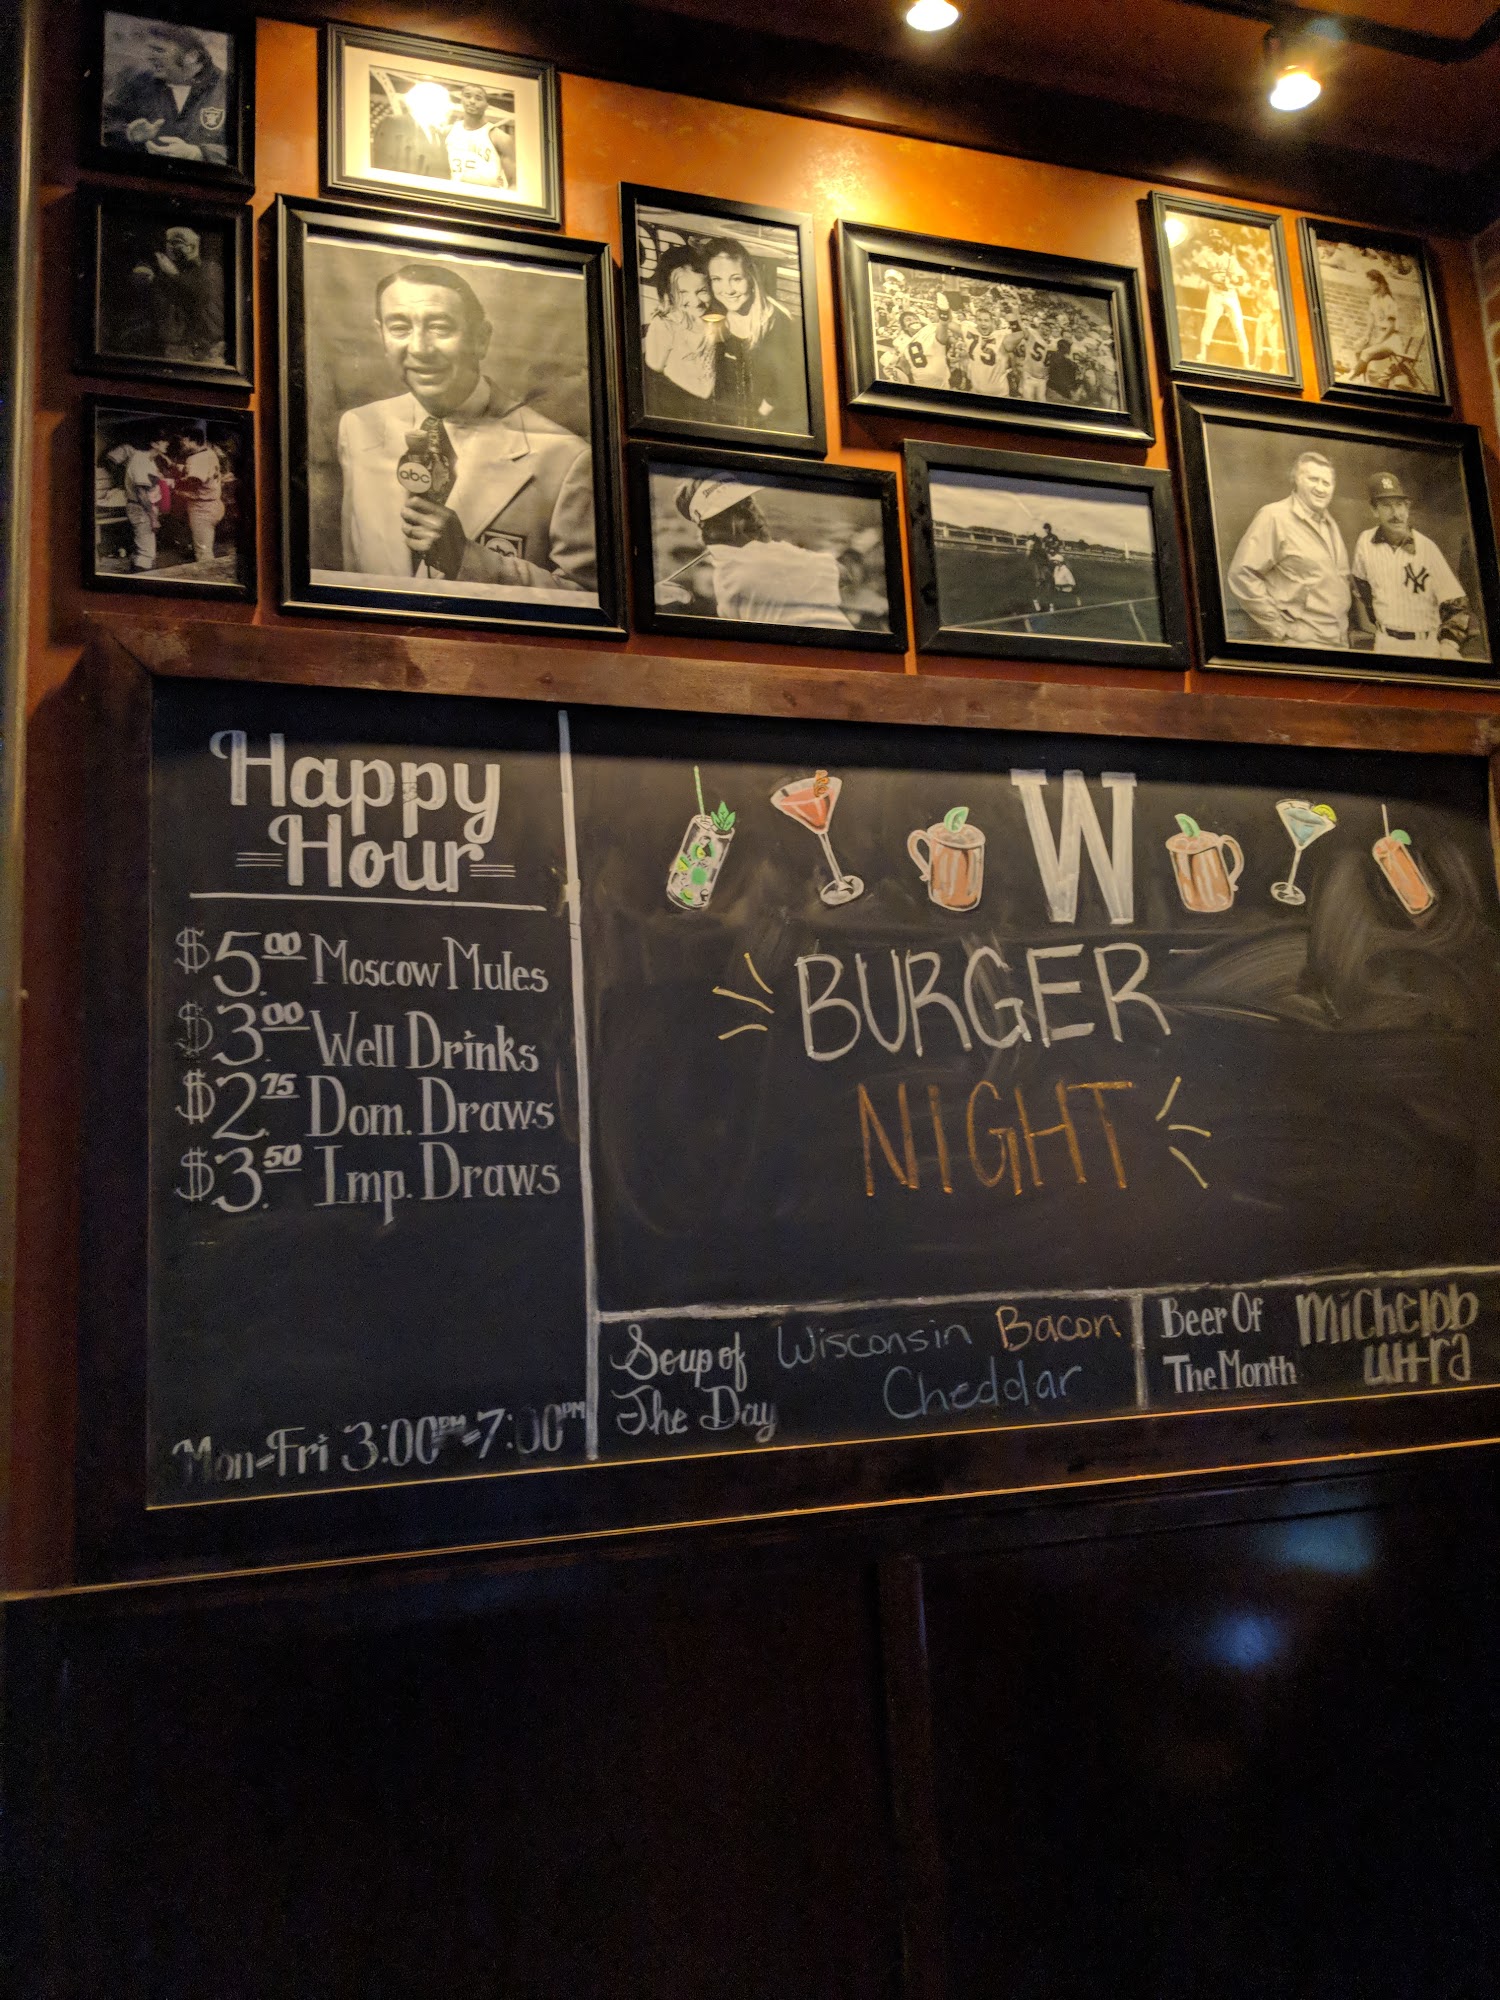 abc
8
75
5
35
NY
Happy
Hour
$5.00 Moscow Mules
$3.00 Well Drinks
$2.75 Dom. Draws
$3.50 Imp. Draws
Mon-Fri 3:00PM-7:00PM
W
BURGER
NIGHT
Soup of
The Day
Wisconsin Bacon
Cheddar
Beer Of
The Month
Michelob
Ultra